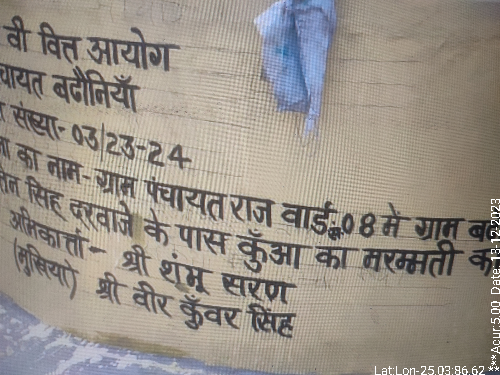 वी वित्त आयोग
चायत बढौनियाँ
संख्या- 03/23-24
का नाम- ग्राम पंचायत राज वार्ड:08 में ग्राम
सिंह दरवाजे के पास कुँआ का मरम्मती
अभिकर्त्ता- श्री शंभू सरण
(मुखिया) श्री वीर कुँवर सिंह
Lat:Lon-25.03:86.62
***Acur:5.00 Date:13-12-2023